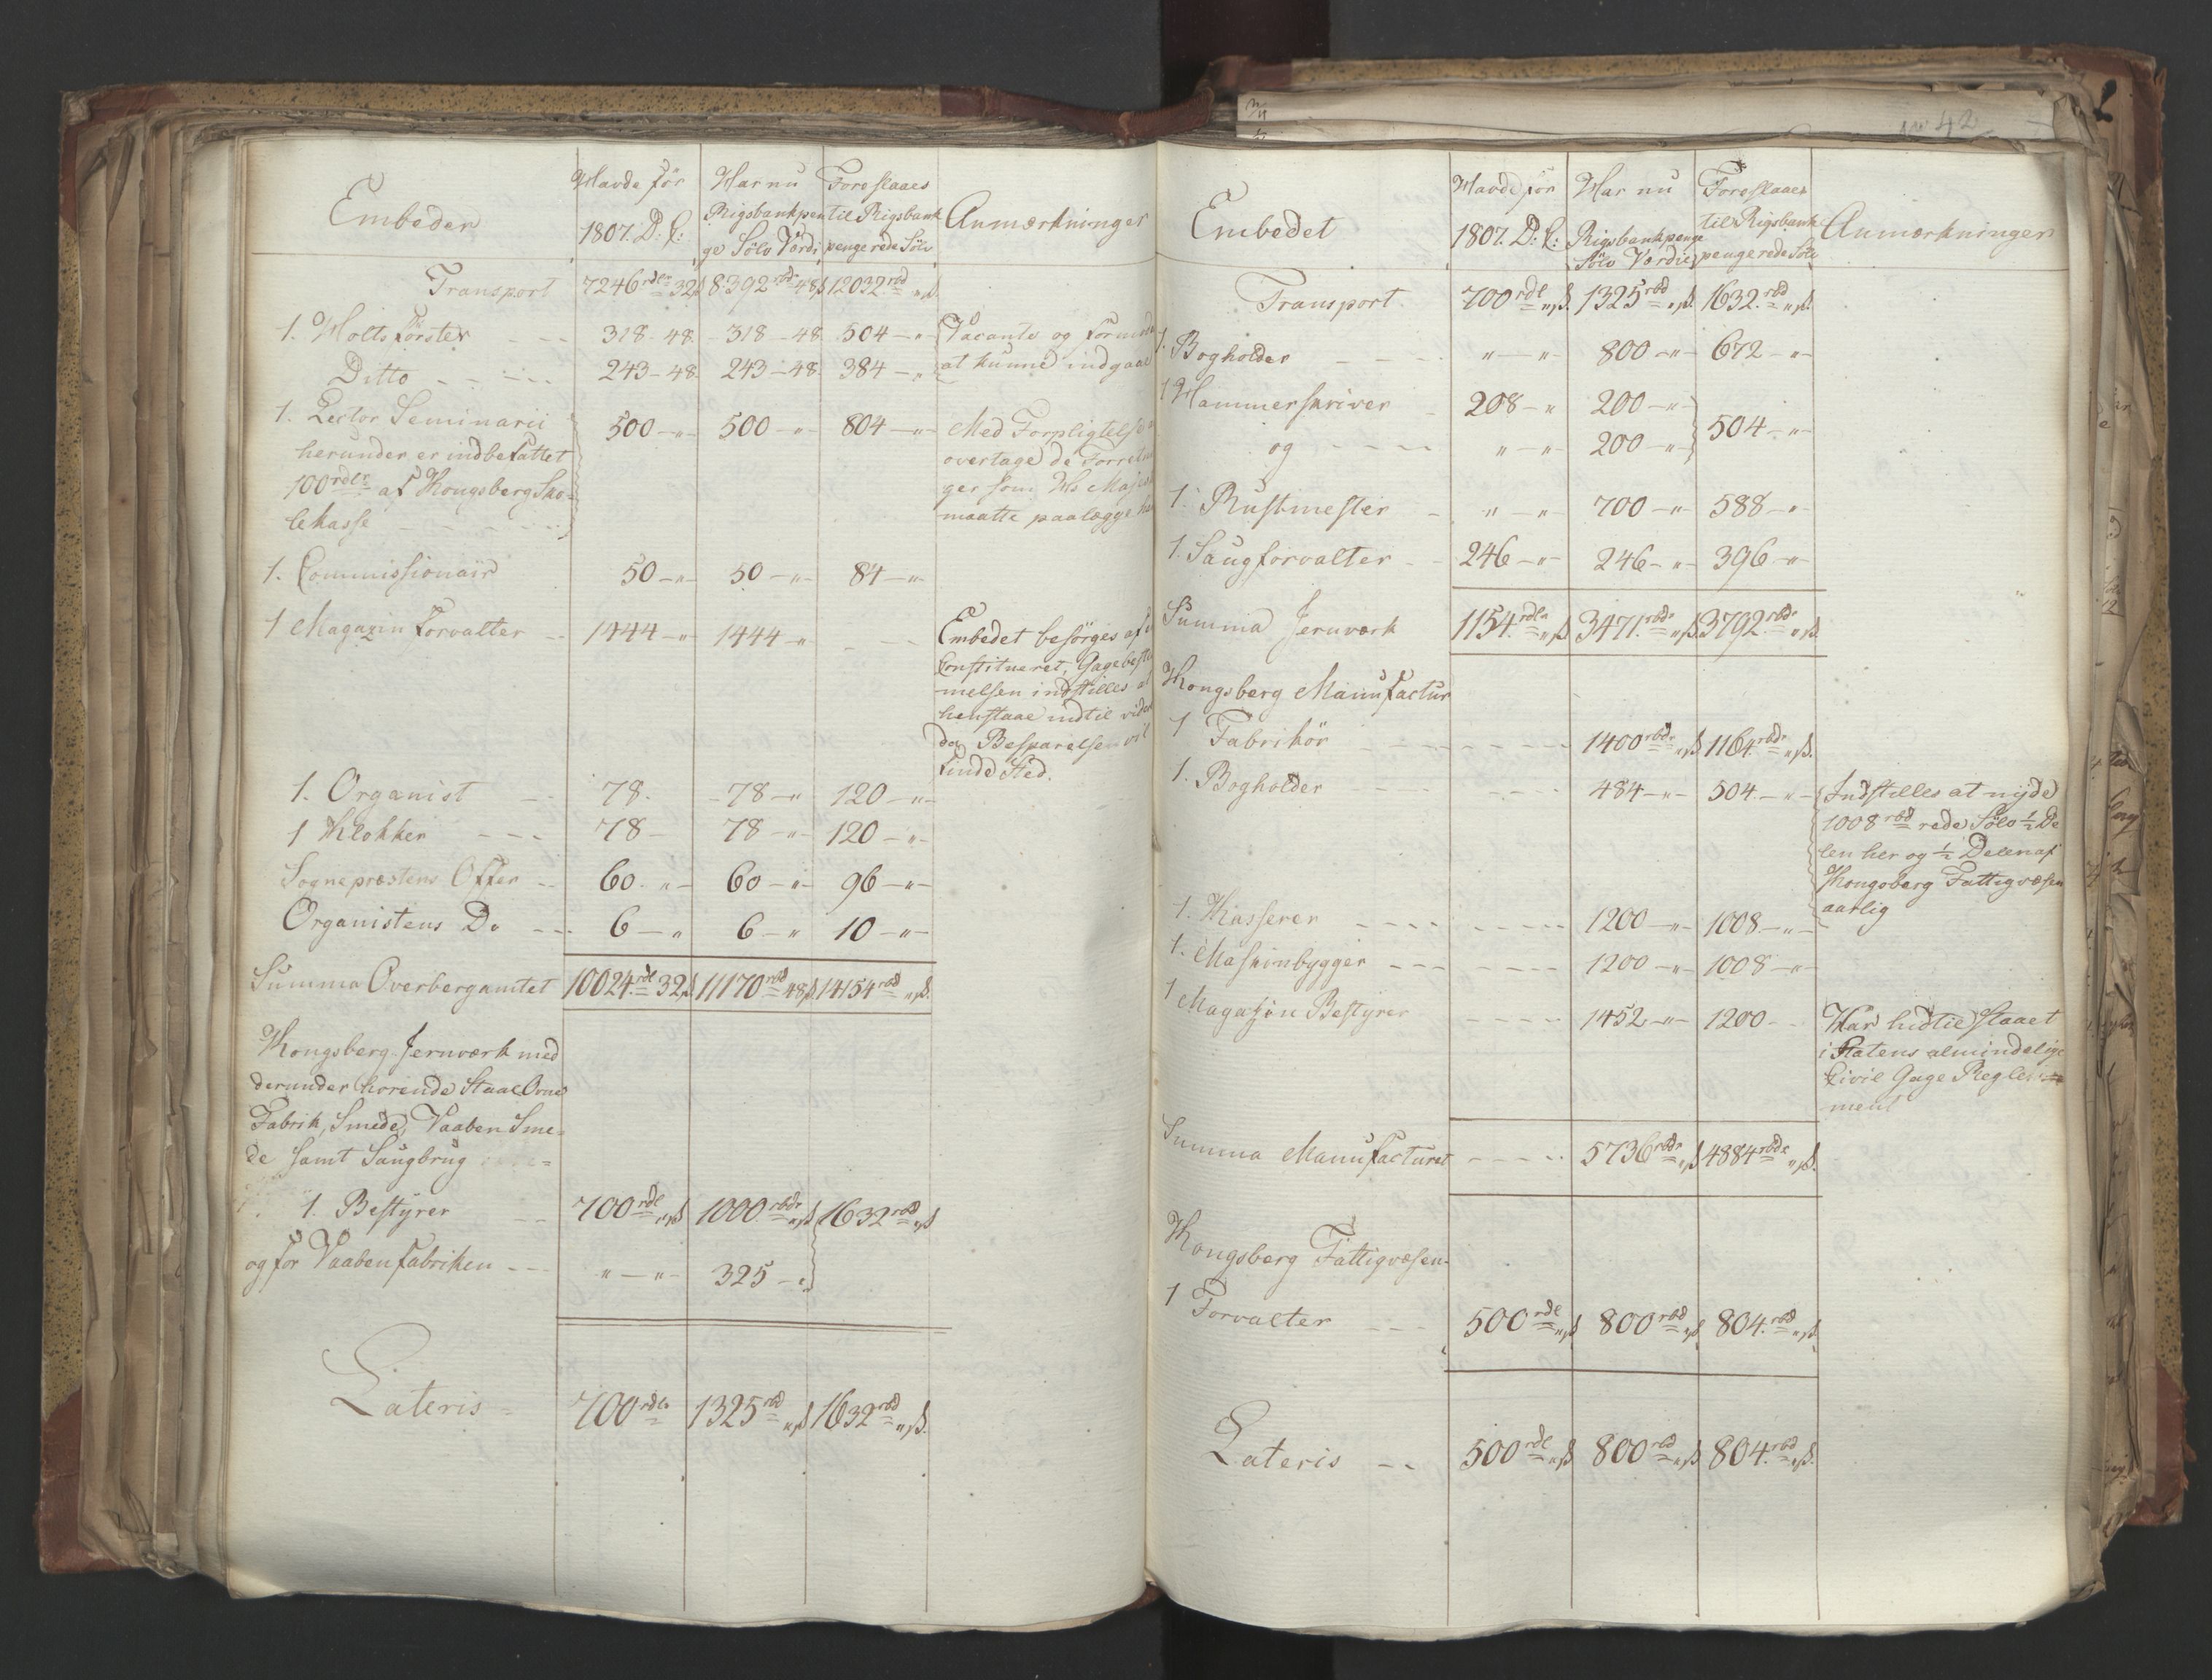 Embeder | Havde før 1807. D: C: | Har nu Rigsbankpenge Sölv Værdi | Foreslaaes til Rigsbankpenge rede Sölv | Anmærkninger
Transport 7246 rdlr 32 ß 8392 rbdr 48 ß 12032 rbd " ß.
1. Holtsförster - - - 318 - 48. - 318 - 48 504 - " - Vacante og
Ditto - - - - 243 - 48. 243 - 48. 384 - " at kunne indgaae
1. Lector Seminarii 500 - " - 500 - " - 804 - " - Med Forpligtelse
herunder er indbefattet overtage de
100 rdlr af Kongsberg Sko- ger som Hs
lekasse - - - - maatte paalægge
1. Commissionair 50 - " - 50 - " - 84 - " -
1 Magazin Forvalter - - 1444 - " 1444 - " - - Embedet besörges af
Constitueret,
melsen indstilles
henstaae indtil
da Besparelse
finde Sted.
1. Organist - - 78. - 78 - " 120 - " -
1 Klokker - - - 78 - 78 - " - 120 - " -
Sognepræstens Offer - - 60. " - 60 - " - 96 - " -
Organistens Do - - - 6 - " 6 - " 10 - " -
Summa Overbergamtet 10024 rdl 32 ß 11170 rbd 48 ß. 14154 rbd " ß.
Kongsberg Jernværk med
derunder horende Staal Ovne
Fabrik, Smede, Vaaben Sme-
de samt Saugbrug
1. Bestyrer - - 700 rdl " ß 1000 rbdr " ß 1632 rbd " ß
og for Vaabenfabriken - - - " - " - 325 - "
Lateris - 700 rdlr 1325 rbd " ß 1632 rbd " ß.
No 42
Embedet | Havde før 1807. D: C: | Har nu Rigsbankpenge Sölv Værdie | Foreslaaes til Rigsbankpenge rede Sölv | Anmærkninger
Transport 700 rdl " ß. 1325 rbd " ß. 1632. rbd " ß.
1. Bogholder - - - - " - " - 800 - " - 672 - " -
1 Hammerskriver - 208 - " 200 - " -
og - - - - " - " - 200 - " - 504 - " -
1. Rustmester - " - " - 700 - " - 588 - " -
1. Saugforvalter - - 246 - " - 246 - " - 396 - " -
Summa Jernværk 1154. rdlr " ß 3471. rbdr " ß 3792. rbdr " ß.
Kongsberg Manufactur
1 Fabrikör - - - - - - - 1400 rbdr " ß 1164. rbdr " ß.
1. Bogholder - - - - - - - 484 - " - 504. - " - Indstilles at nyde
1008 rbd rede Sölv ½ De
len her og ½ Delen af
Kongsberg Fattigvæsen
aarlig
1. Kasserer - - - - - - - - 1200 - " - 1008. - " -
1. Maskinbygger - - - - - - - 1200 - " - 1008 - " -
1 Magasin Bestyrer - - - - 1452 - " - 1200 - - Har hidtil staaet
i Statens almindelige
Civil Gage Regle
ment
Summa Manufacturet - - - - - 5736 rbdr " ß 4884 rbdr " ß.
Kongsberg Fattigvæsen.
1 Forvalter - - - 500 rdl " ß 800 rbd " ß 804. rbd " ß.
Lateris - - 500 rdl " ß 800 rbd " ß 804. rbd " ß.